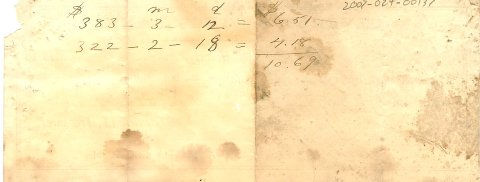 $ m d $ 2007-024-00131
383 - 3 - 12 = 6.51
322 - 2 - 18 = 4.18
10.69